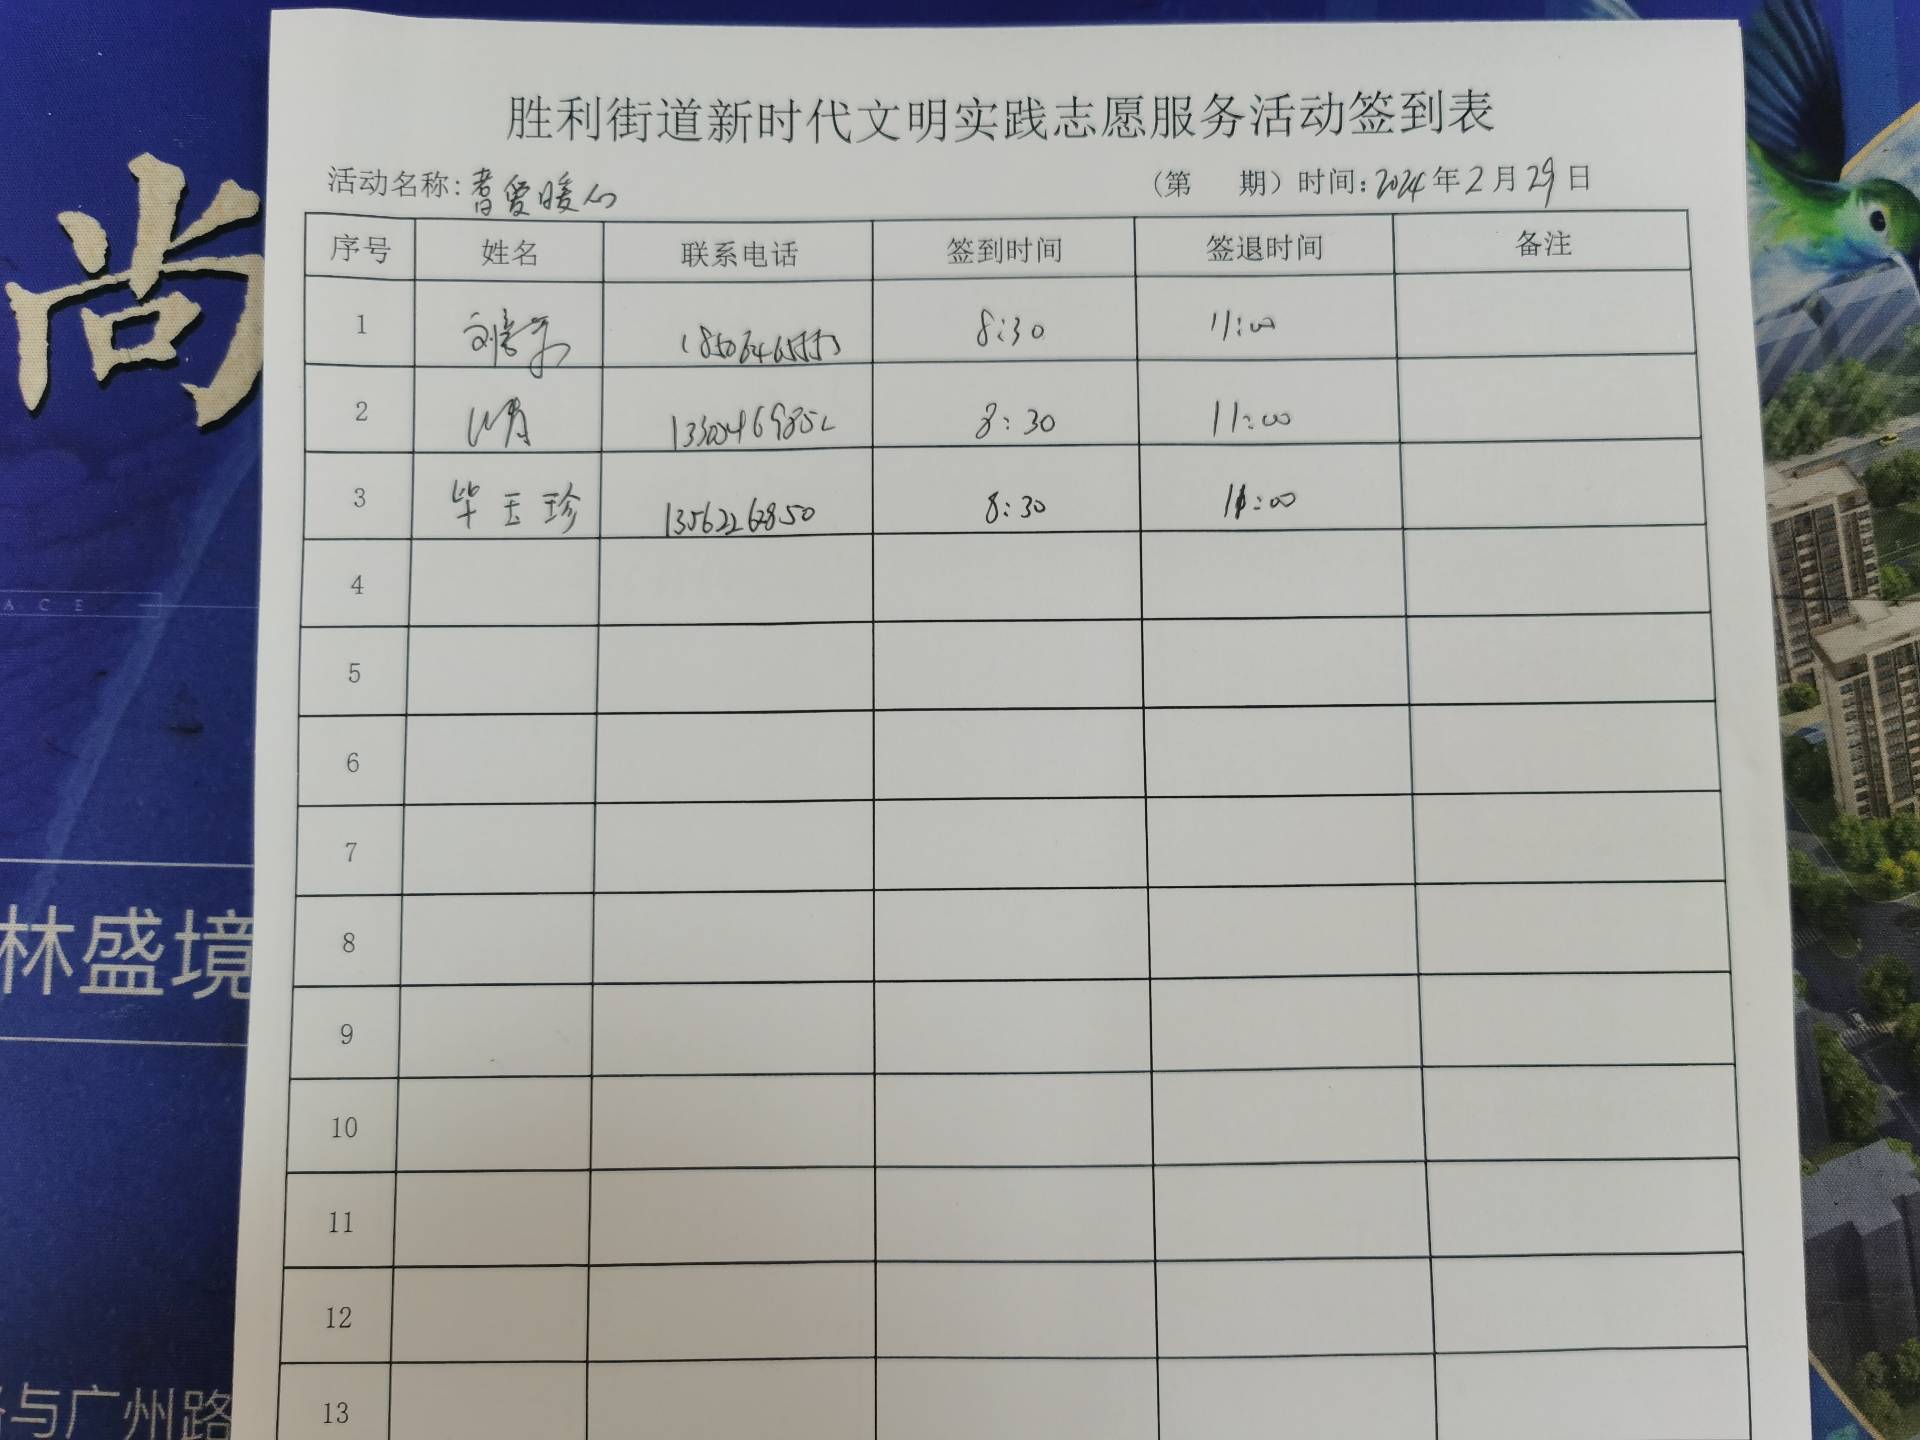 胜利街道新时代文明实践志愿服务活动签到表
活动名称:耆爱暖心 (第 期) 时间:2024年2月29日
序号 姓名 联系电话 签到时间 签退时间 备注
1 8:30 11:00
2 8:30 11:00
3 毕玉珍 13562262850 8:30 11:00
4
5
6
7
8
9
10
11
12
13
尚
ACE
林盛境
与广州路